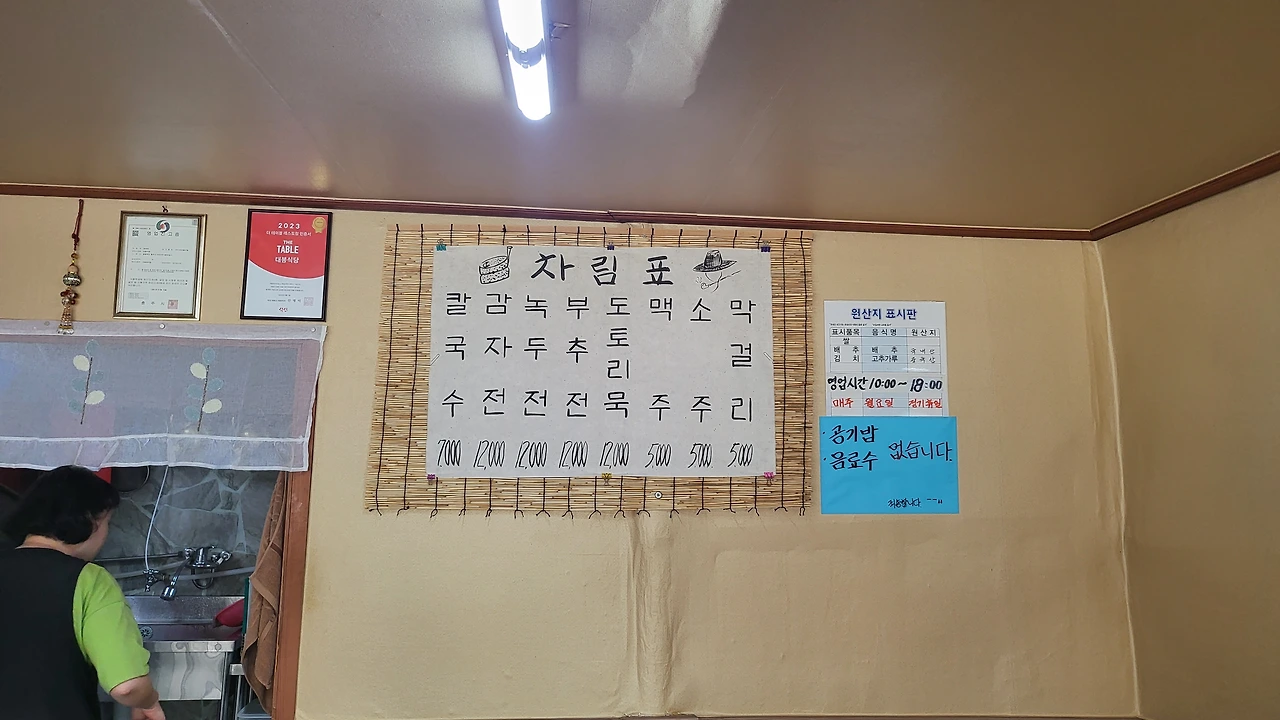 2023
더 테이블 레스토랑 인증서
THE
TABLE
대봉식당
차림표
칼국수 7,000
감자전 12,000
녹두전 12,000
부추전 12,000
도토리묵 12,000
맥주 5,000
소주 5,000
막걸리 5,000
원산지 표시판
표시품목 음식명 원산지
쌀
배추 배추
김치 고추가루
영업시간 10:00~18:00
매주 월요일 정기휴일
·공기밥
·음료수 없습니다